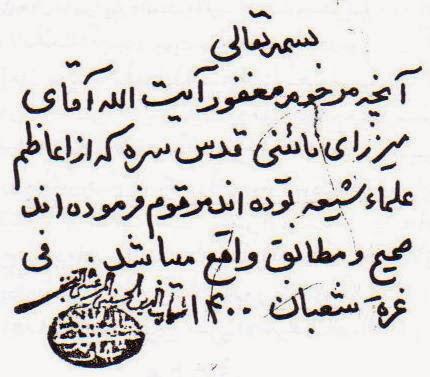 بسمه تعالی
آنچه مرحوم مغفور آیت الله آقای
میرزای نائنی قدس سره که از اعاظم
علماء شیعه بوده اند مرقوم فرموده اند
صحیح و مطابق واقع میباشد. فی
غرهٔ شعبان ۱۴۰۰